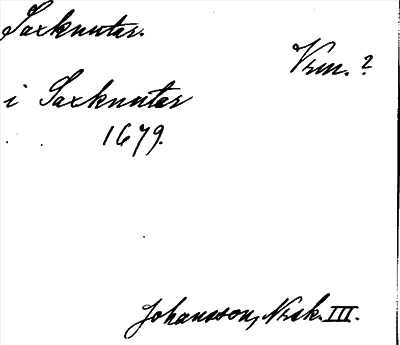 Saxknutar.
Vrm. ?
i Saxknutar
1679.
Johansson, Nrsk. III.